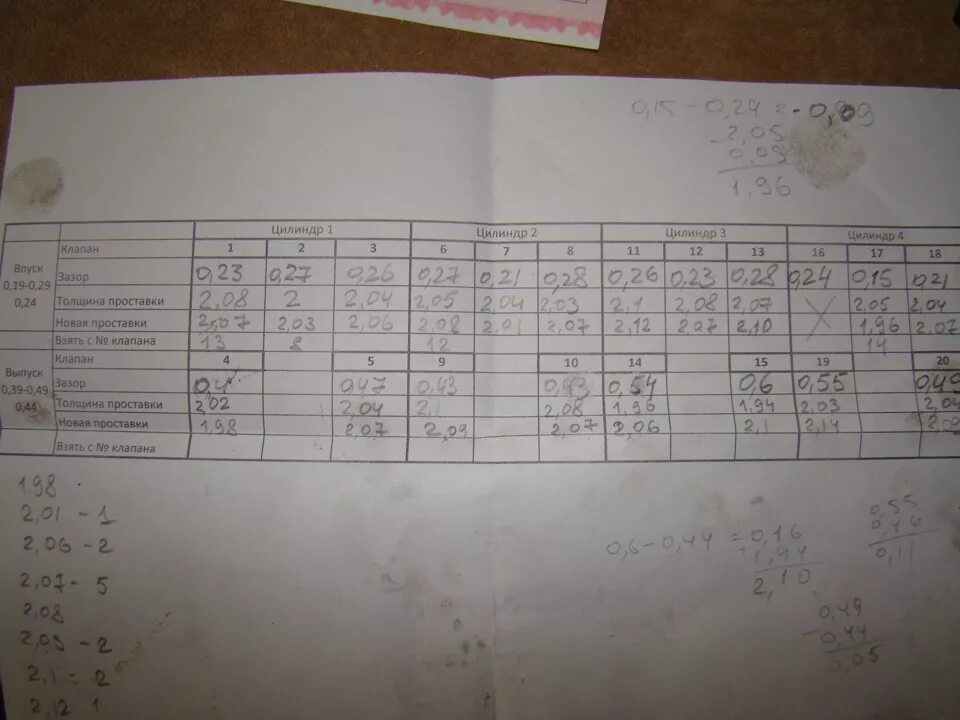 0,15 - 0,24 = -0,09
- 2,05
0,09
1,96
Цилиндр 1 Цилиндр 2 Цилиндр 3 Цилиндр 4
Впуск 0,19-0,29 0,24
Клапан 1 2 3 6 7 8 11 12 13 16 17 18
Зазор 0,23 0,27 0,26 0,27 0,21 0,28 0,26 0,23 0,28 0,24 0,15 0,21
Толщина проставки 2.08 2 2.04 2.05 2.04 2.03 2.1 2.08 2.07 X 2.05 2.04
Новая проставки 2.07 2.03 2.06 2.08 2.01 2.07 2.12 2.07 2.10 1.96 2.07
Взять с № клапана 13 8 12 14
Выпуск 0,39-0,49 0,44
Клапан 4 5 9 10 14 15 19 20
Зазор 0,4 0,47 0,43 0,43 0,54 0,6 0,55 0,49
Толщина проставки 2,02 2.04 2.1 2.08 1.96 1.94 2.03 2.04
Новая проставки 1.98 2.07 2.09 2.07 2.06 2.1 2.14 2.08
Взять с № клапана
1.98
2,01 - 1
2,06 - 2
2,07 - 5
2,08
2,09 - 2
2,1 - 2
2,12 1
0,6 - 0,44 = 0,16
+ 1,94
2,10
0,55
0,44
0,11
- 0,49
0,44
0,05